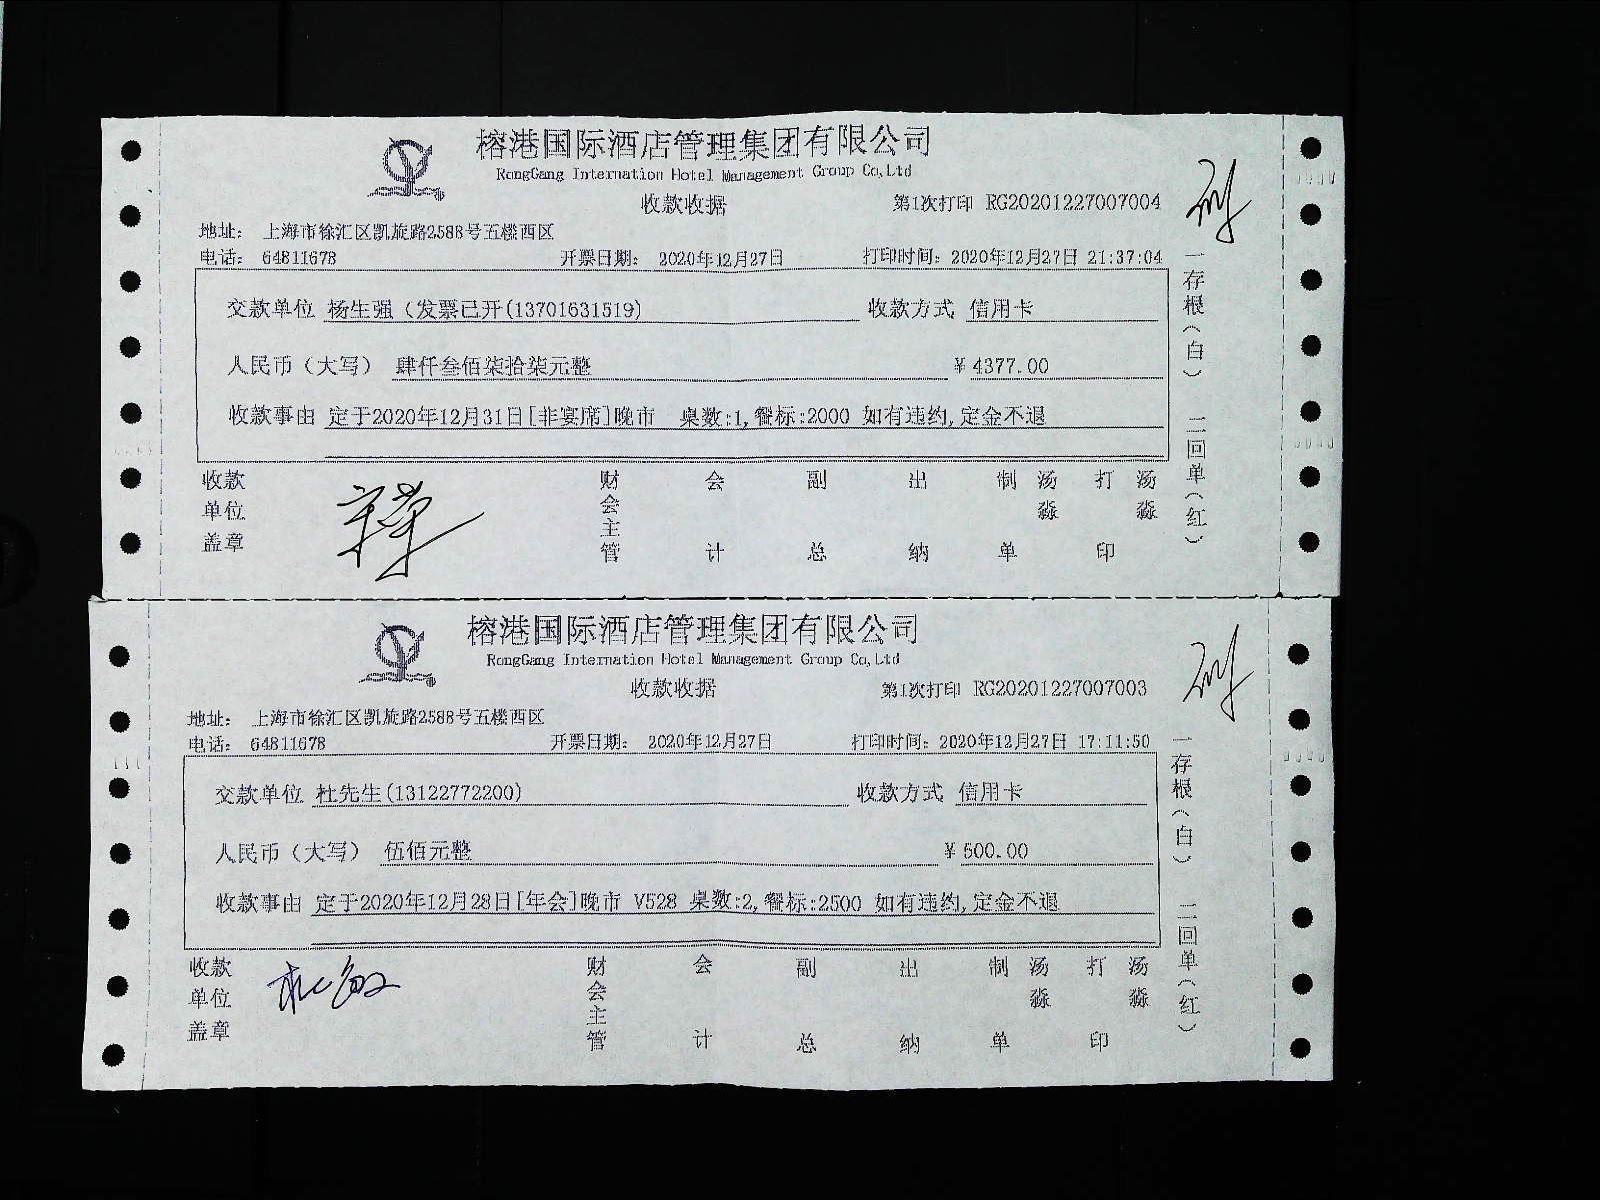 榕港国际酒店管理集团有限公司
RongGang Internation Hotel Management Group Co,Ltd
收款收据 第1次打印 RG20201227007004
地址: 上海市徐汇区凯旋路2588号五楼西区
电话: 64811678 开票日期: 2020年12月27日 打印时间: 2020年12月27日 21:37:04
交款单位 杨生强（发票已开(13701631519) 收款方式 信用卡
人民币（大写） 肆仟叁佰柒拾柒元整 ¥4377.00
收款事由 定于2020年12月31日[非宴席]晚市 桌数:1,餐标:2000 如有违约,定金不退
收款单位盖章 财会主管 会计 副总 出纳 制单 汤淼 打印 汤淼
一存根(白) 二回单(红)
榕港国际酒店管理集团有限公司
RongGang Internation Hotel Management Group Co,Ltd
收款收据 第1次打印 RG20201227007003
地址: 上海市徐汇区凯旋路2588号五楼西区
电话: 64811678 开票日期: 2020年12月27日 打印时间: 2020年12月27日 17:11:50
交款单位 杜先生(13122772200) 收款方式 信用卡
人民币（大写） 伍佰元整 ¥500.00
收款事由 定于2020年12月28日[年会]晚市 V528 桌数:2,餐标:2500 如有违约,定金不退
收款单位盖章 财会主管 会计 副总 出纳 制单 汤淼 打印 汤淼
一存根(白) 二回单(红)